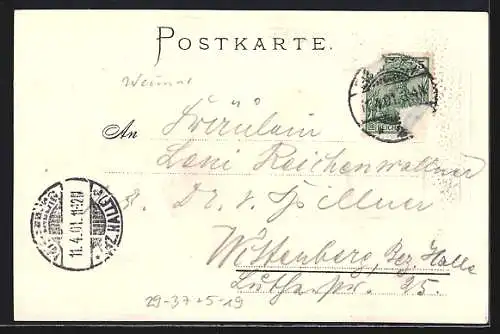 POSTKARTE.
Weimar
An Fräulein
Leni Reichenwallner
b. Dr. v. Spillner
Wittenberg, Bez. Halle
Lutherstr. 25.
11.4.01. 11-12V
29-37+5-19